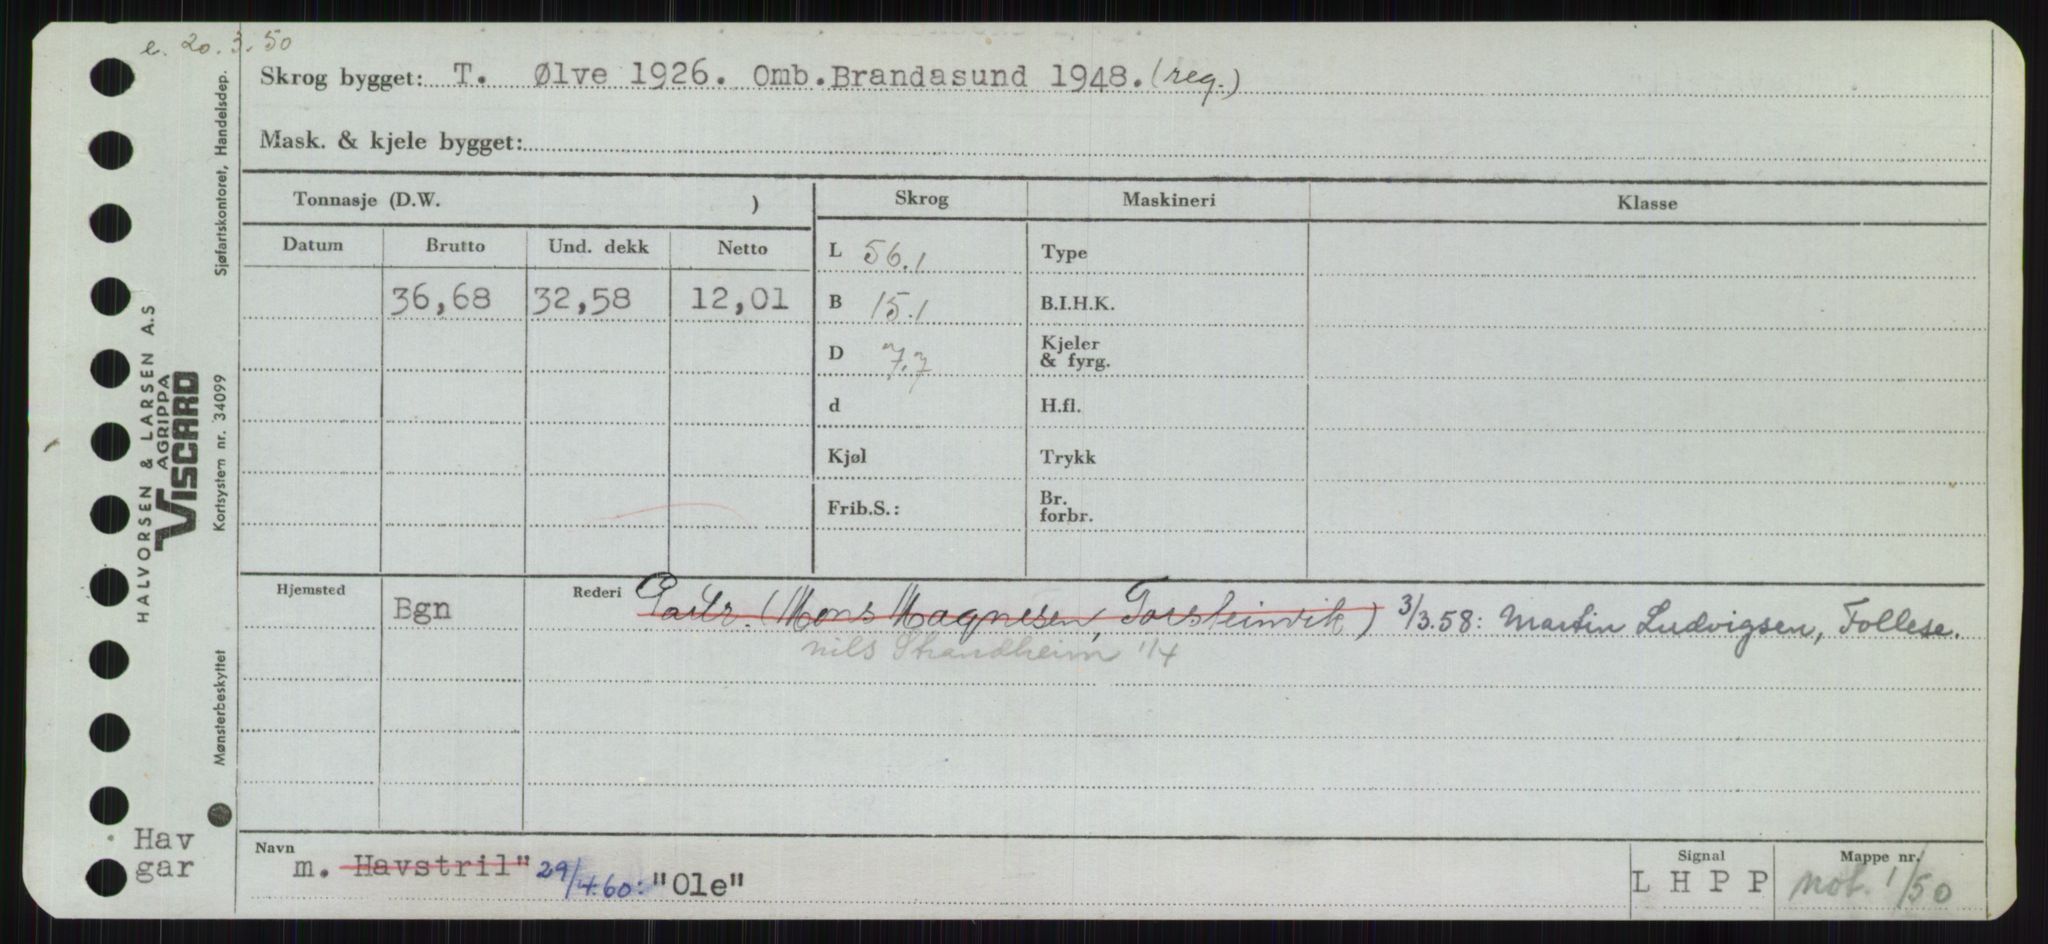 e. 20.3.50
Skrog bygget: T. Ølve 1926. Omb. Brandasund 1948. (reg.)
Mask. & kjele bygget:
Tonnasje (D.W. )
Skrog Maskineri Klasse
Datum Brutto Und. dekk Netto
36,68 32,58 12,01
L 56.1 Type
B 15.1 B.I.H.K.
D 7.7 Kjeler & fyrg.
d H.fl.
Kjøl Trykk
Frib.S.: Br. forbr.
Hjemsted Bgn Rederi Partr. (Mons Magnesen, Torsteinvik) 3/3.58: Martin Ludvigsen, Follese.
Nils Strandheim 1/4
Navn m. Havstril" 29/4.60: "Ole"
Signal L H P P
Mappe nr. not. 1/50
Hav
gar
HALVORSEN & LARSEN A.S
AGRIPPA
VISCARD
Sjøfartskontoret, Handelsdep.
Kortsystem nr. 34099
Mønsterbeskyttet